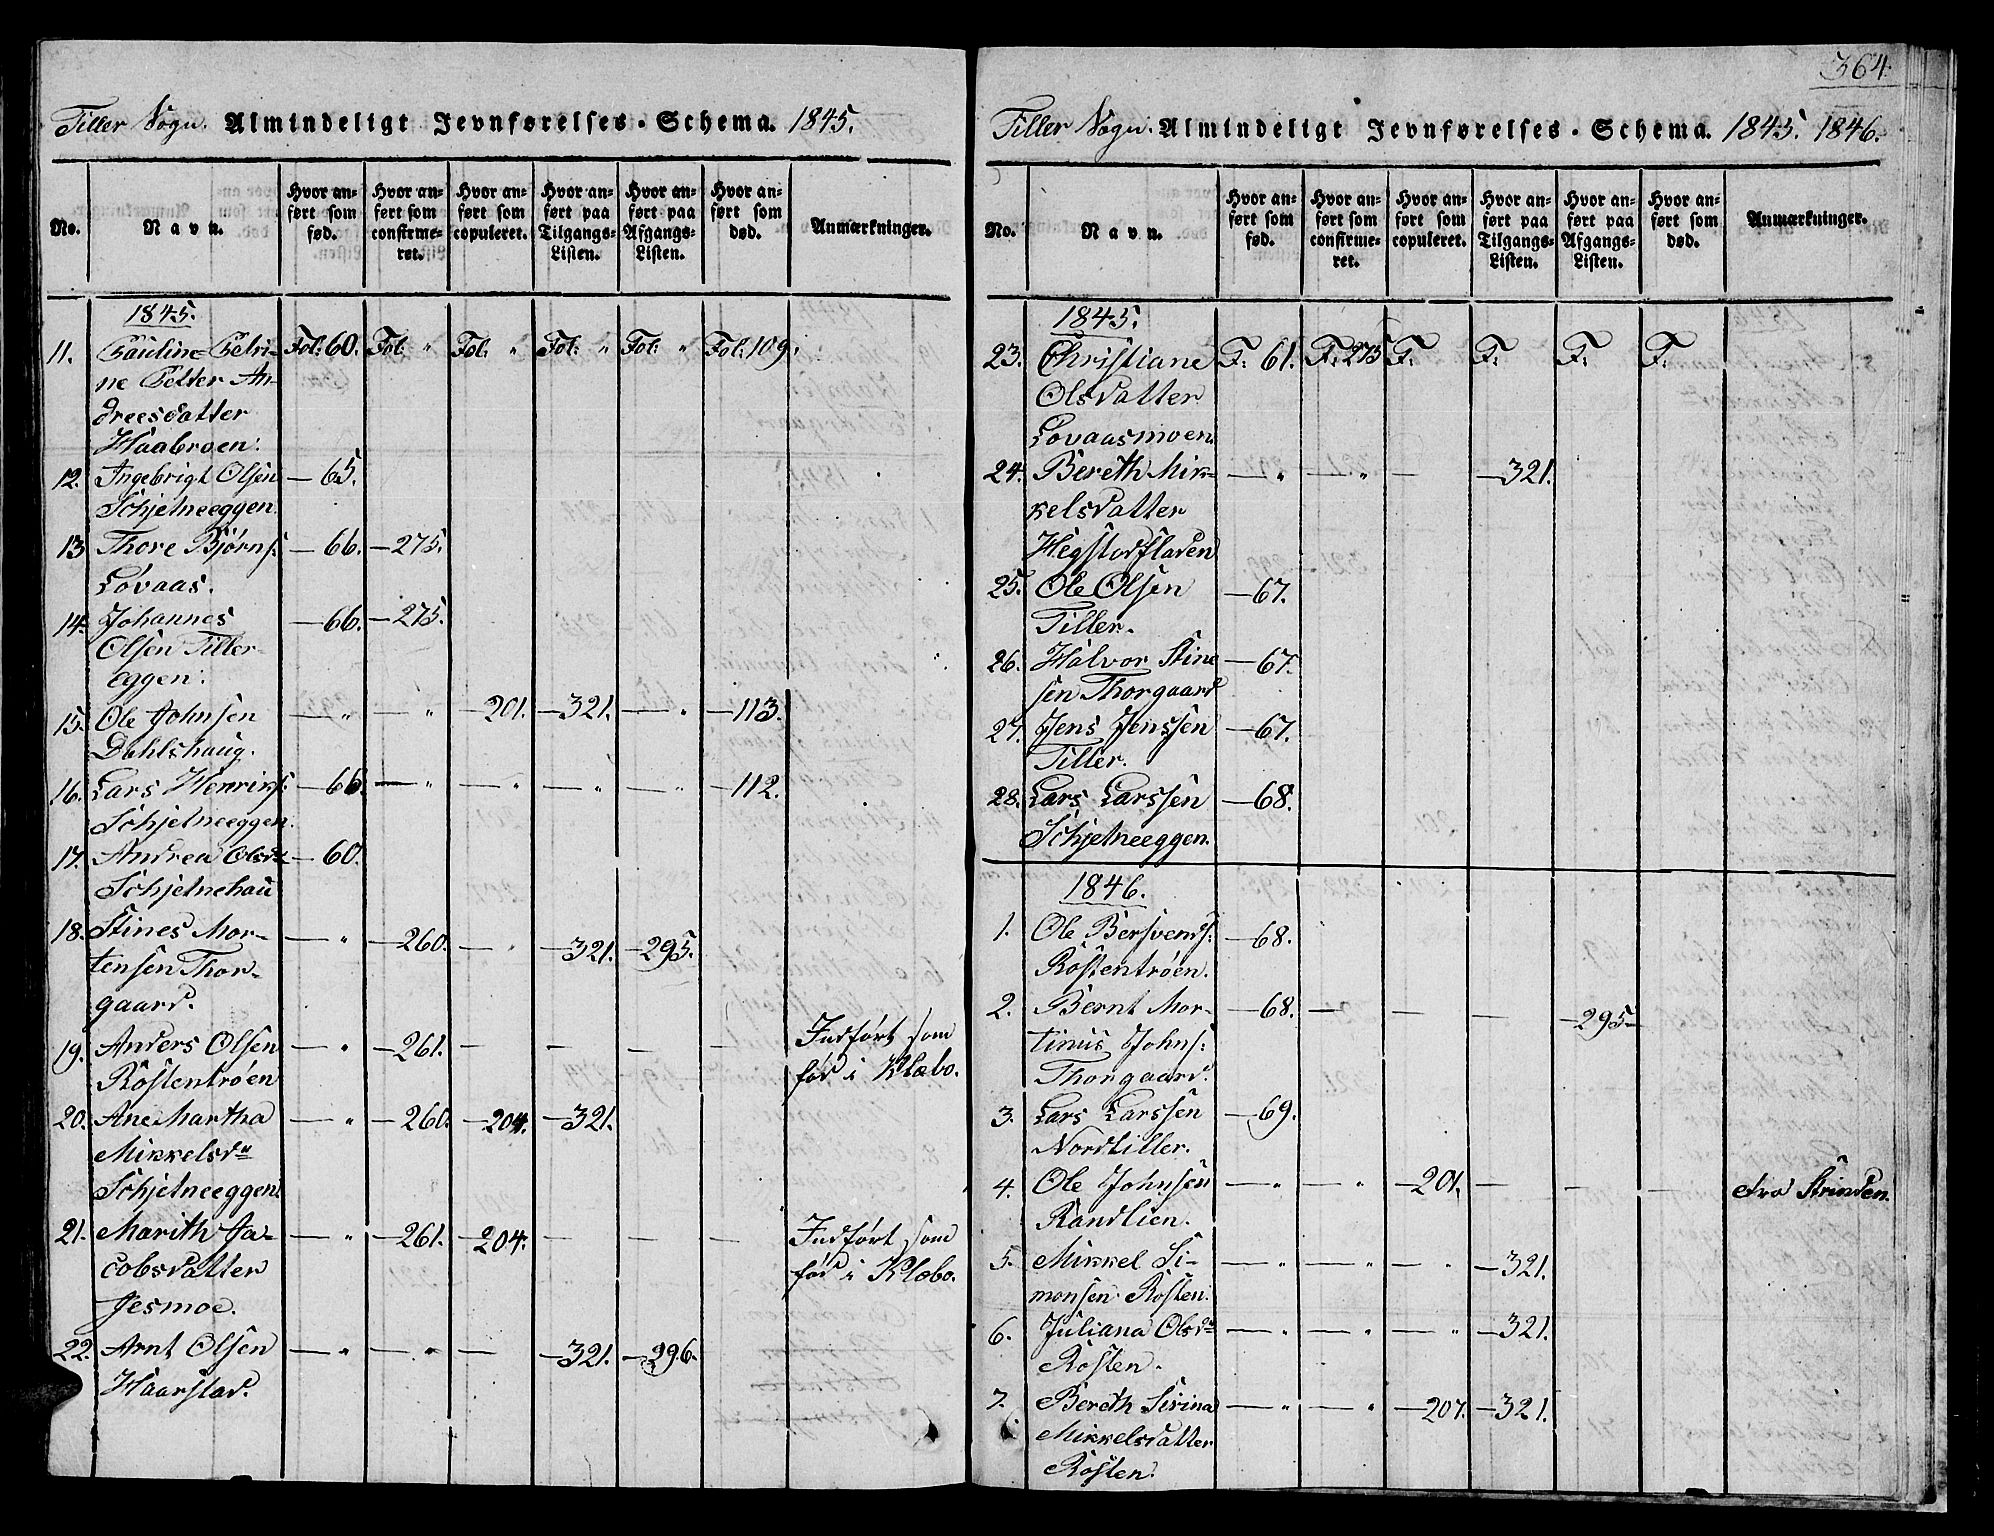 Tiller Sogn. Almindeligt Jevnførelses-Schema. 1845.
No. Navn. Hvor anført som fød. Hvor anført som confirmeret. Hvor anført som copuleret. Hvor anført paa Tilgangs-Listen. Hvor anført paa Afgangs-Listen. Hvor anført som død. Anmærkninger.
1845.
11. Pauline Petri- Fol: 60. Fol: " Fol: " Fol: " Fol: " Fol: 109.
ne Petter An-
dreesdatter
Haabroen:
12. Ingebrigt Olsen — 65.
Schjetneeggen.
13. Thore Bjørns: — 66. — 275.
Løvaas.
14. Johannes — 66. — 275.
Olsen Tiller-
eggen.
15. Ole Johnsen — " — " — 201. — 321. — " — 113.
Dahlshaug.
16. Lars Henriks: — 66. — " — " — " — " — 112.
Schjetneeggen.
17. Andrea Olsdr — 60.
Schjetnehau
18. Stines Mor- — " — 260. — " — 321. — 295.
tensen Thor-
gaard.
19. Anders Olsen — " — 261. — — — — Indført som
Röstentröen fød i Klæbo.
20. Ane Martha — " — 260. — 204. — 321.
Mikkelsdr
Schjetneeggen
21. Marith Ja- — " — 261. — 204. — — — Indført som
cobsdatter fød i Klæbo.
Jesmoe.
22. Arnt Olsen — " — " — — 321. — 296.
Haarstad.
364.
Tiller Sogn. Almindeligt Jevnførelses-Schema. 1845. 1846.
No. Navn. Hvor anført som fød. Hvor anført som confirmeret. Hvor anført som copuleret. Hvor anført paa Tilgangs-Listen. Hvor anført paa Afgangs-Listen. Hvor anført som død. Anmærkninger.
1845.
23. Christiane F: 61. F: 275 F: F: F: F:
Olsdatter
Løvaasmoen.
24. Bereth Mik- — " — " — — 321.
kelsdatter
Hegstadfladen
25. Ole Olsen — 67.
Tiller.
26. Halvor Stine — 67.
sen Thorgaard
27. Jens Jenssen — 67.
Tiller.
28. Lars Larssen — 68.
Schjetneeggen.
1846.
1. Ole Bersvends: — 68.
Röstentröen.
2. Bernt Mor- — 68. — — — — 295 —
tinus Johns:
Thorgaard.
3. Lars Larssen — 69.
Nordtiller.
4. Ole Johnsen — " — " — 201. — — — dra Strinden.
Randlien.
5. Mikkel Si- — " — " — " — 321.
monsen Rosten.
6. Juliana Olsdr — " — " — " — 321.
Rosten.
7. Bereth Sirina — " — " — 207. — 321.
Mikkelsdatter
Rosten.